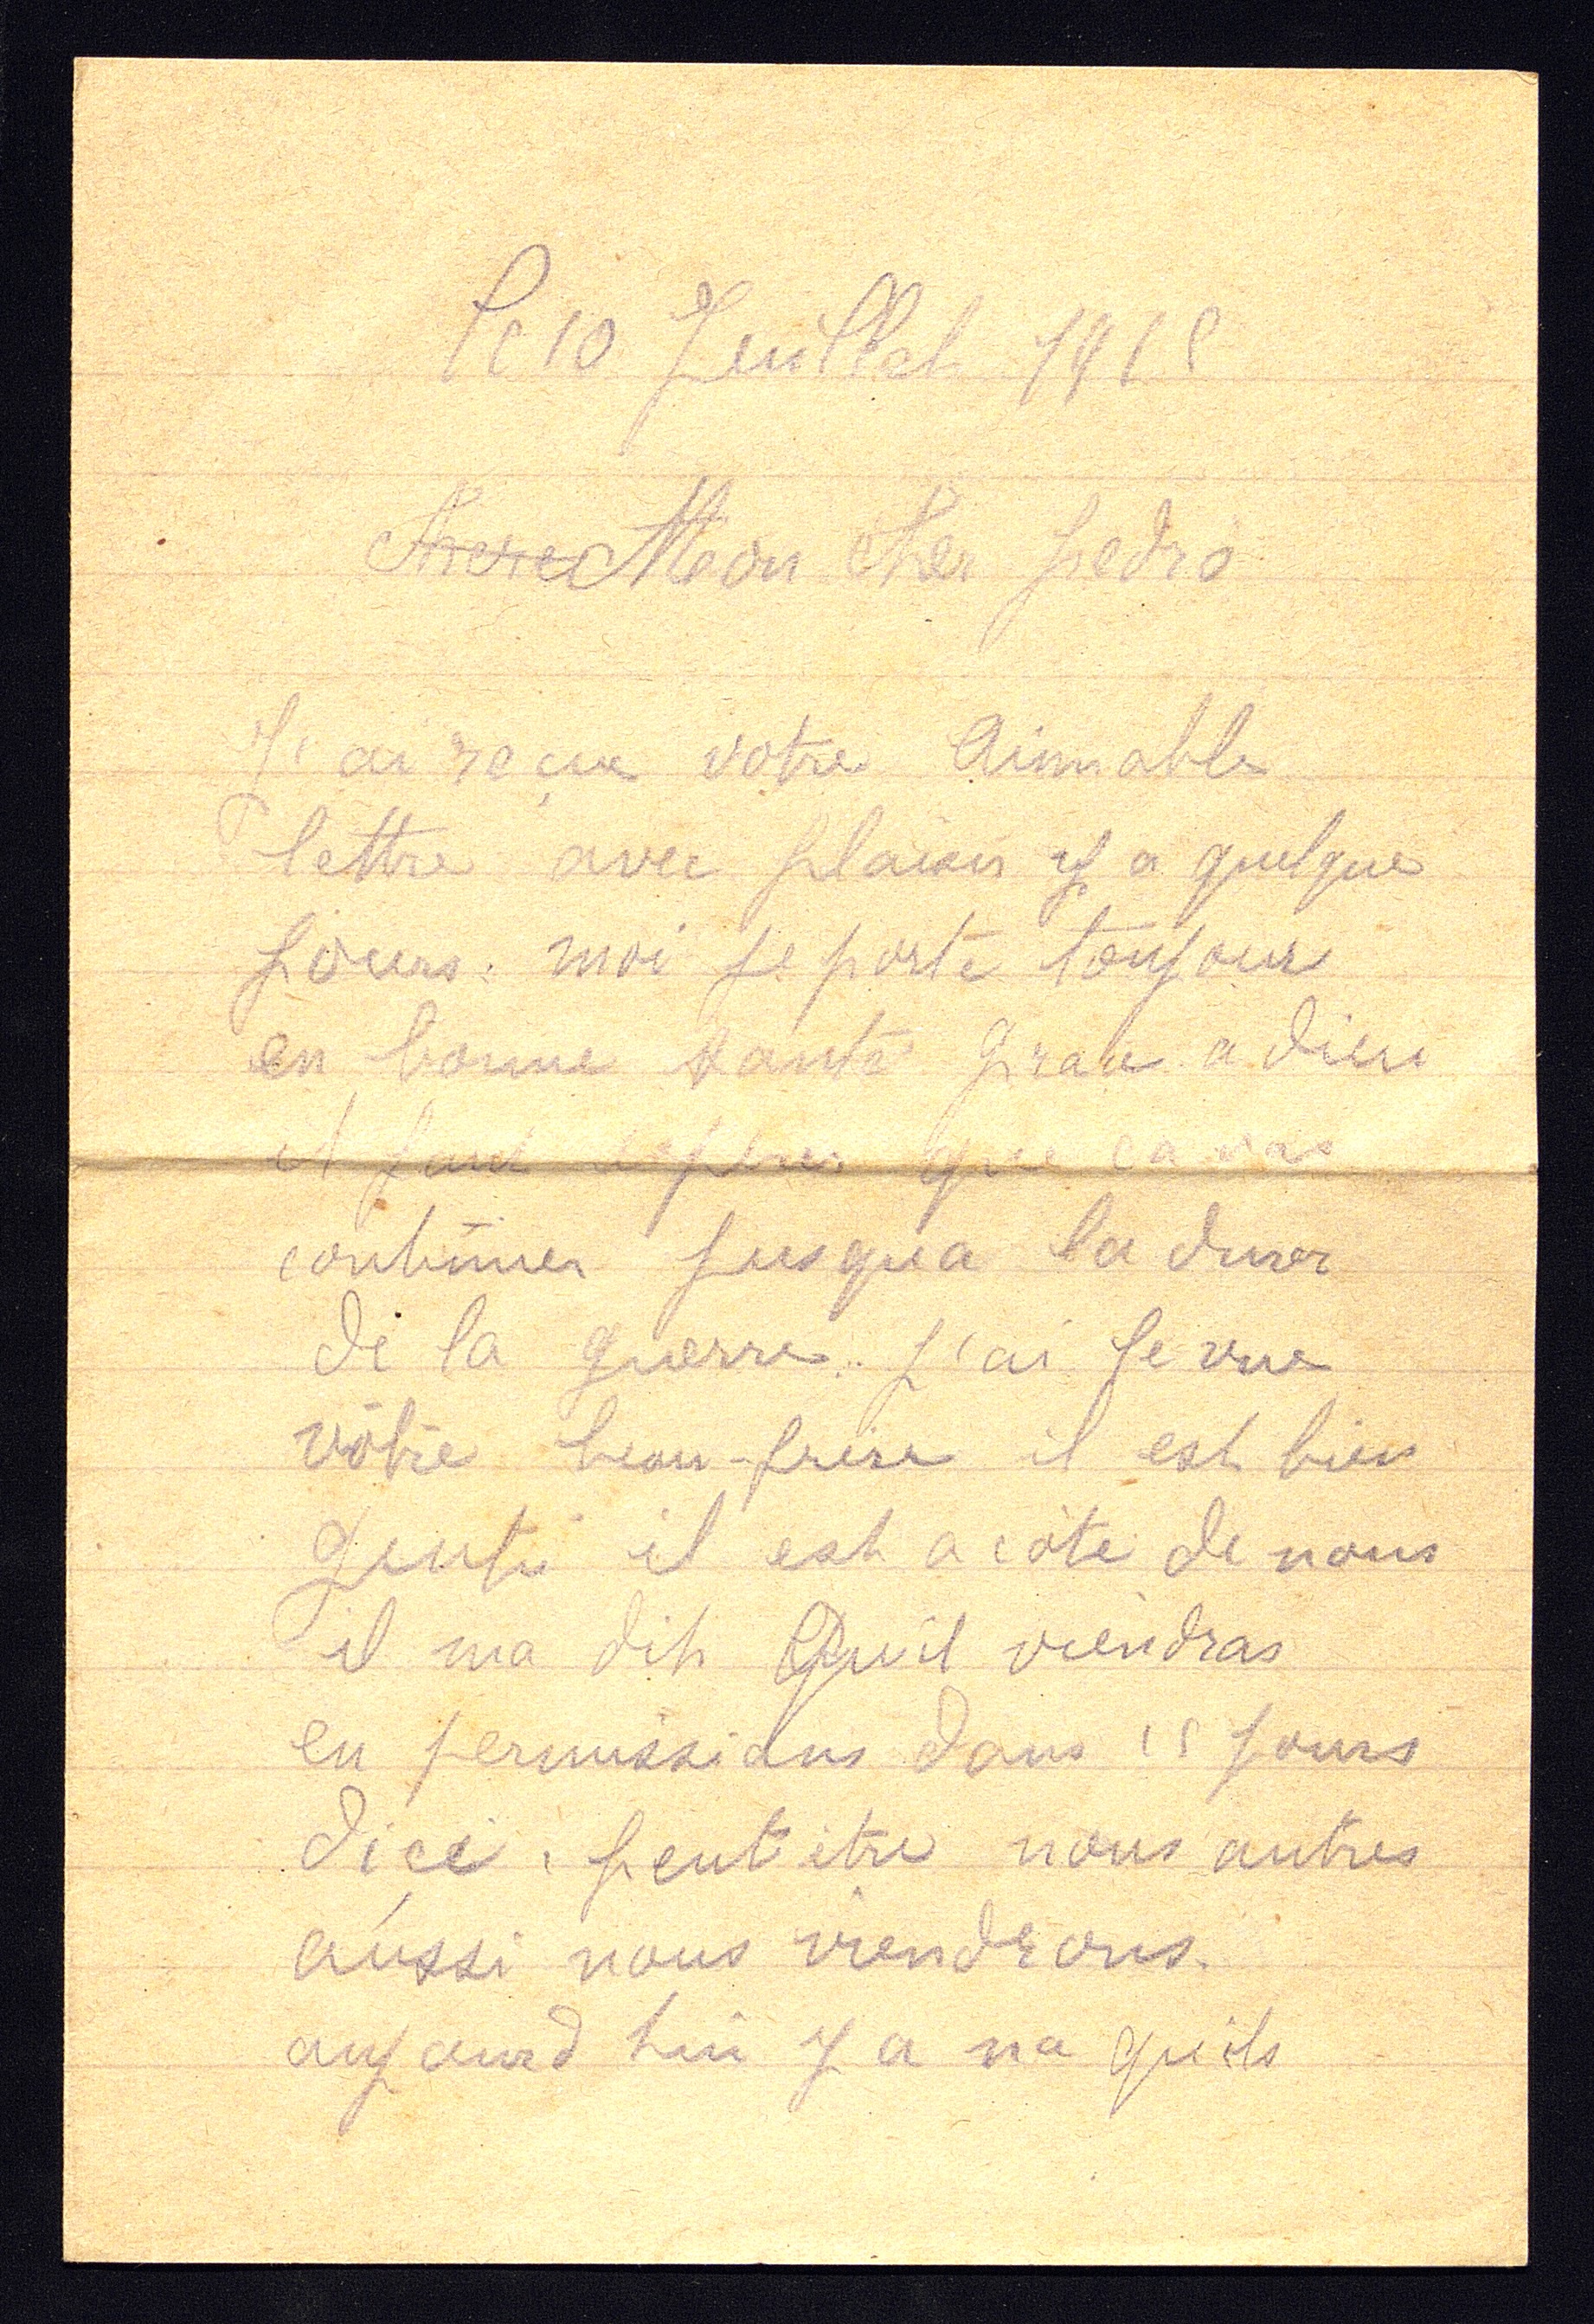 Le 10 Juillet 1915
Mon cher pedro
J'ai reçue votre Aimable
lettre avec plaisir y a quelque
jours. moi je porte toujour
en bonne santé grace a dieu
il faut esperer que ca vas
continuer jusqua la durer
de la guerre. j'ai je vue
vôtre beau-frère il est bien
gentil il est a côté de nous
il ma dit Qu'il viendras
en permissions dans 15 jours
dici. peut être nous autres
aussi nous viendrons.
aujourd hui y a na qu'ils